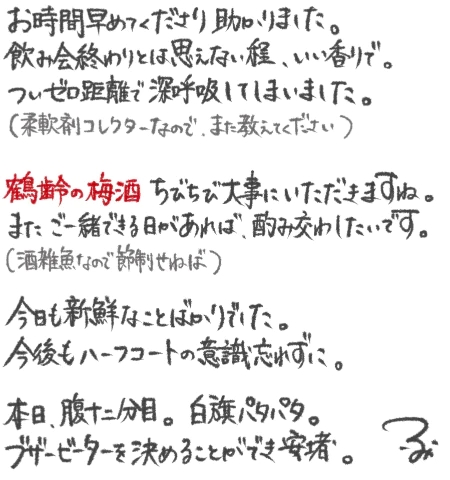 お時間早めてくださり助かりました。
飲み会終わりとは思えない程、いい香りで。
ついゼロ距離で深呼吸してしまいました。
(柔軟剤コレクターなので、また教えてください)
鶴齢の梅酒 ちびちび大事にいただきますね。
また ご一緒できる日があれば、酌み交わしたいです。
(酒雑魚なので節制せねば)
今日も新鮮なことばかりでした。
今後もハーフコートの意識忘れずに。
本日、腹十二分目。白旗パタパタ。
ブザービーターを決めることができ安堵。